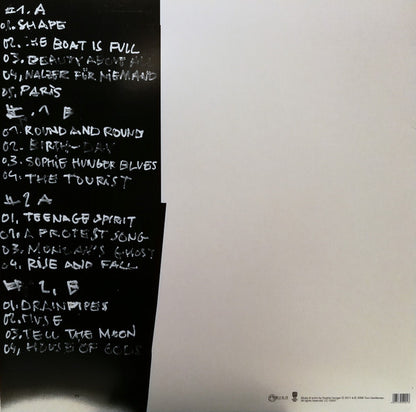 #1. A
01. SHAPE
02. THE BOAT IS FULL
03. BEAUTY ABOVE ALL
04, WALZER FÜR NIEMAND
05. PARIS
#. 1 B
01. ROUND AND ROUND
02. BIRTH-DAY
03. SOPHIE HUNGER BLUES
04. THE TOURIST
#2 A
01. TEENAGE SPIRIT
02. A PROTEST SONG
03. MONDAY'S GHOST
04. RISE AND FALL
# 2, B
01. DRAINPIPES
02.
03. TELL THE MOON
04, HOUSE OF GODS